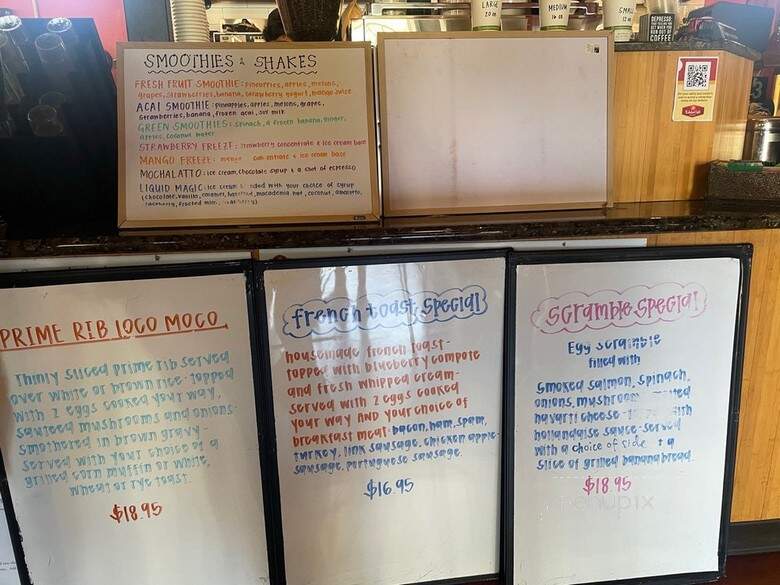 LARGE
20 oz
MEDIUM
16 oz
SMALL
12 oz
DEPRESSO
COFFEE
SMOOTHIES & SHAKES
FRESH FRUIT SMOOTHIE: pineapples, apples, melons,
grapes, strawberries, banana, strawberry yogurt, mango juice
ACAI SMOOTHIE: pineapples, apples, melons, grapes,
strawberries, banana, frozen acai, soy milk
GREEN SMOOTHIES: spinach, a frozen banana, ginger,
apples, coconut water
STRAWBERRY FREEZE: strawberry concentrate & ice cream base
MANGO FREEZE: mango concentrate & ice cream base
MOCHALATTO: ice cream, chocolate syrup & a shot of espresso
LIQUID MAGIC: ice cream blended with your choice of syrup
(chocolate, vanilla, caramel, hazelnut, macadamia nut, coconut, amaretto,
raspberry, frosted mint,
PRIME RIB LOCO MOCO
Thinly sliced prime rib served
over white or brown rice-topped
with 2 eggs cooked your way,
sauteed mushrooms and onions-
smothered in brown gravy-
served with your choice of a
grilled corn muffin or white,
wheat or rye toast.
$18.95
french toast special
housemade french toast-
topped with blueberry compote
and fresh whipped cream-
served with 2 eggs cooked
your way AND your choice of
breakfast meat: bacon, ham, spam,
turkey, link sausage, chicken apple
sausage, portuguese sausage.
$16.95
scramble special
Egg scramble
filled with
smoked salmon, spinach,
onions, mushroom
havarti cheese-
hollandaise sauce-served
with a choice of side & a
slice of grilled banana bread.
$18.95
menupix